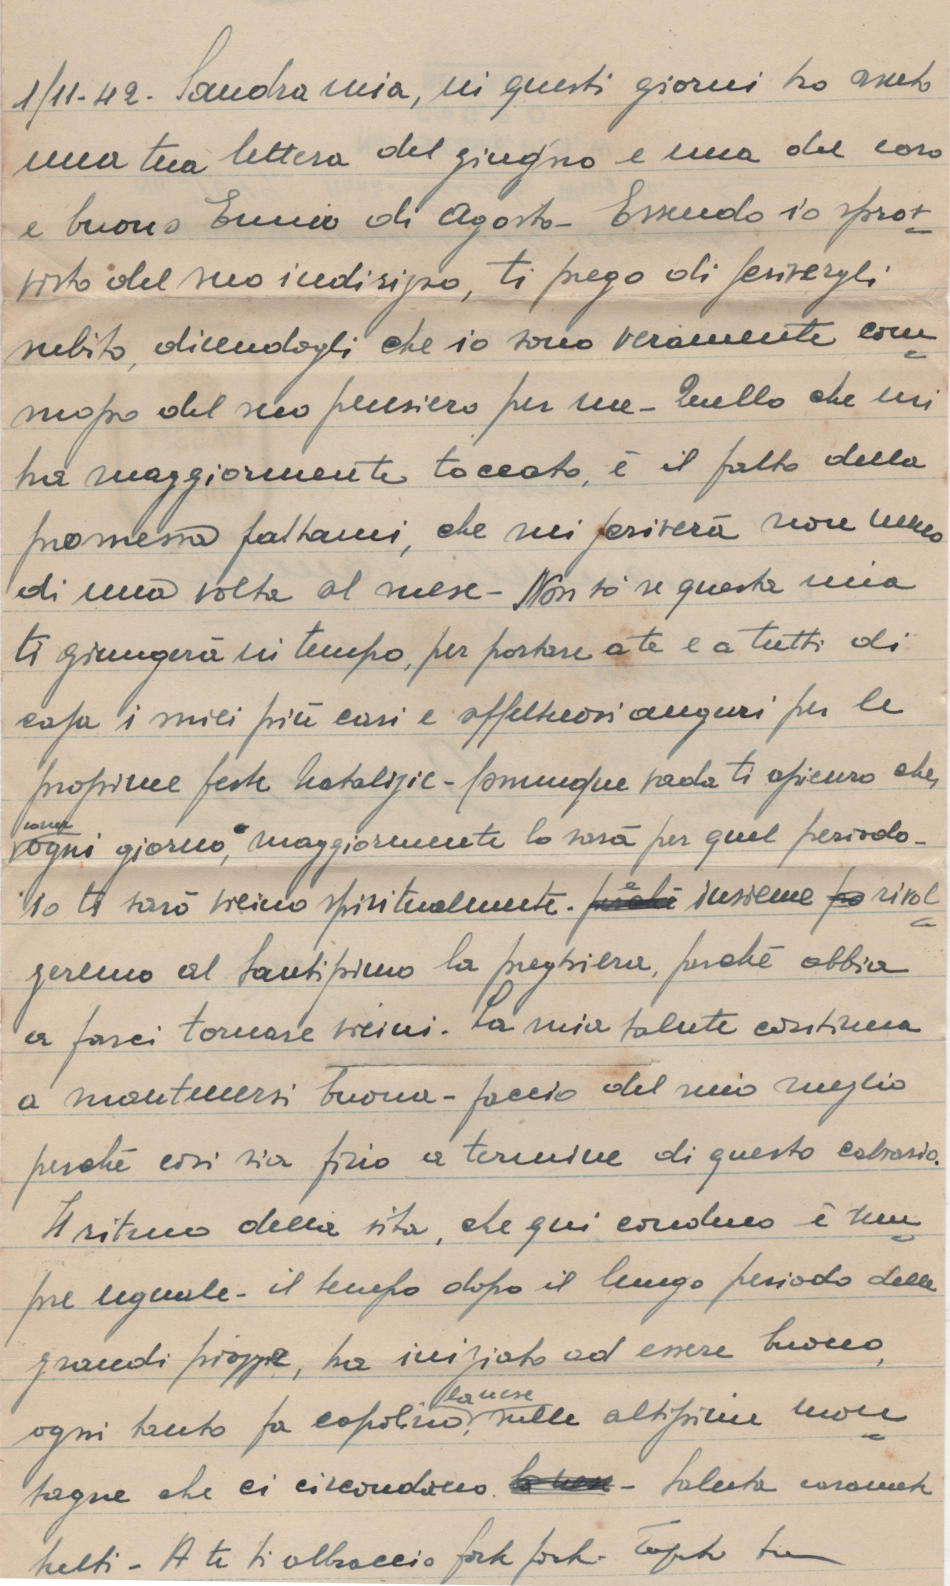 1/11-42- Sandra mia, in questi giorni ho avuto
una tua lettera del giugno e una del caro
e buono Ennio di Agosto- Essendo io sprov
visto del suo indirizzo, ti prego di scrivergli
subito, dicendogli che io sono veramente com
mosso del suo pensiero per me- Quello che mi
ha maggiormente toccato, è il fatto della
promessa fattami, che mi scriverà non meno
di una volta al mese- Non so se questa mia
ti giungerà in tempo, per portare a te e a tutti di
casa i miei più cari e affettuosi auguri per le
prossime feste Natalizie- Comunque vada ti assicuro che,
come
ogni giorno, maggiormente lo sarà per quel periodo-
io ti sarò vicino spiritualmente. è insieme rivol
geremo al Santissimo la preghiera, perchè abbia
a farci tornare vicini. La mia salute continua
a mantenersi buona- faccio del mio meglio
perchè così sia fino a termine di questo calvario.
Il ritmo della vita, che qui conduco è sem
pre uguale- il tempo dopo il lungo periodo delle
grandi piogge, ha iniziato ad essere buono,
la neve
ogni tanto fa capolino, sulle altissime mon
tagne che ci circondano - Saluta caramente
tutti- A te ti abbraccio forte forte. tuo